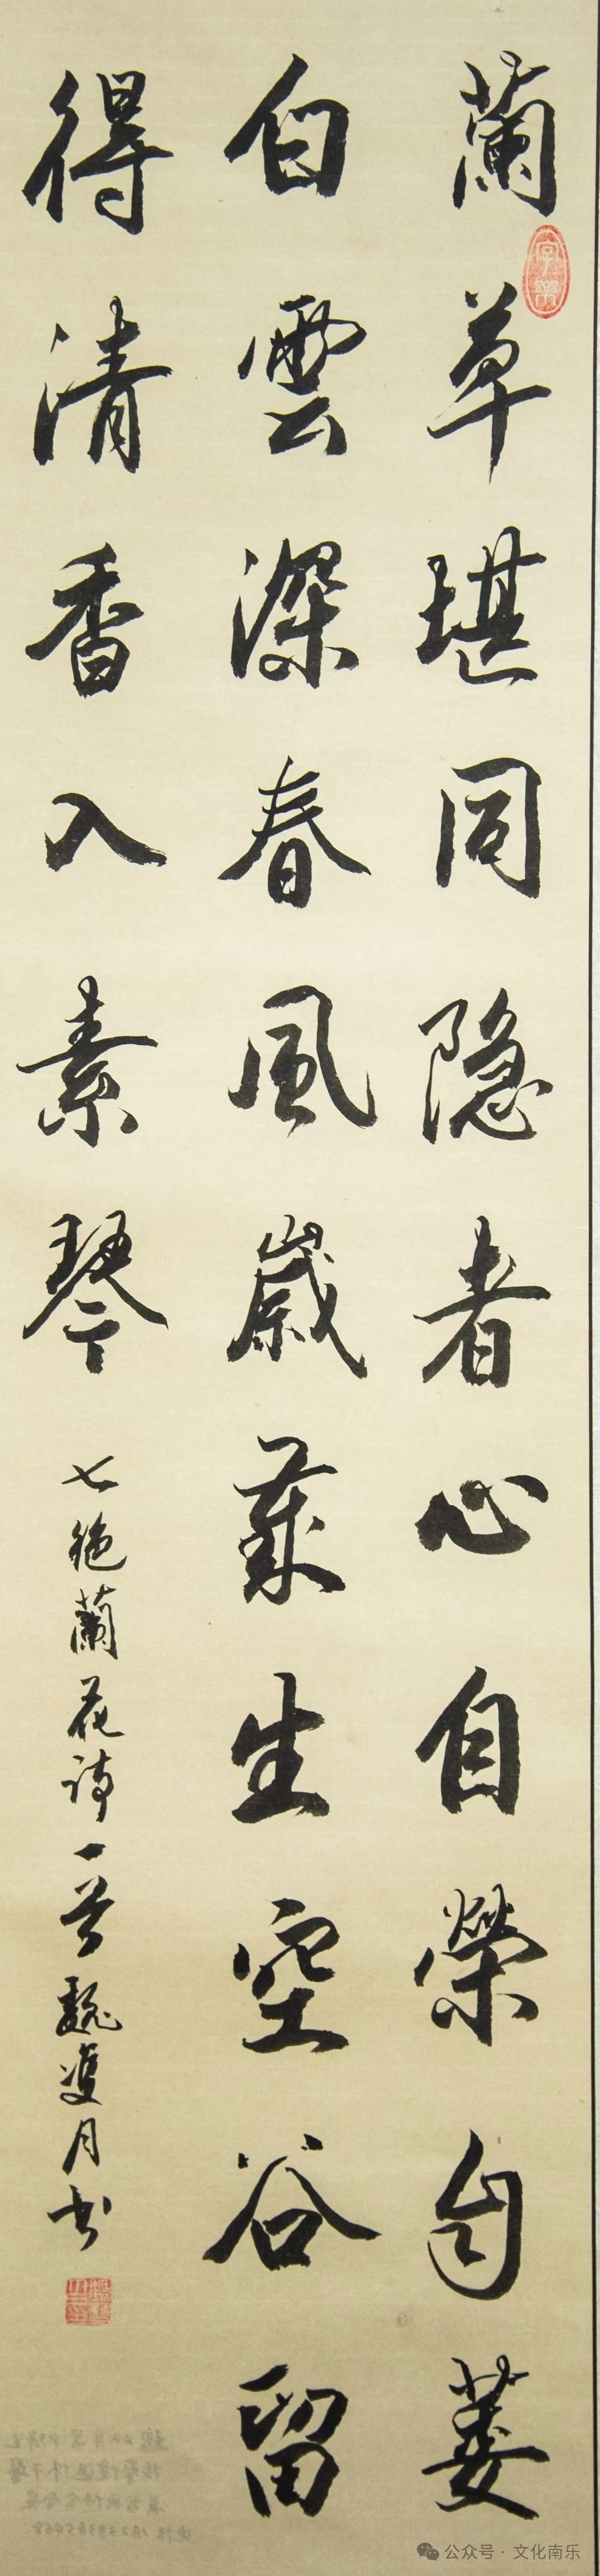 蘭草堪同隐者心自榮自萎
白雲深春風歲歲生空谷留
得清香入素琴
七絕蘭花詩一首魏雙月书
公众号·文化南乐